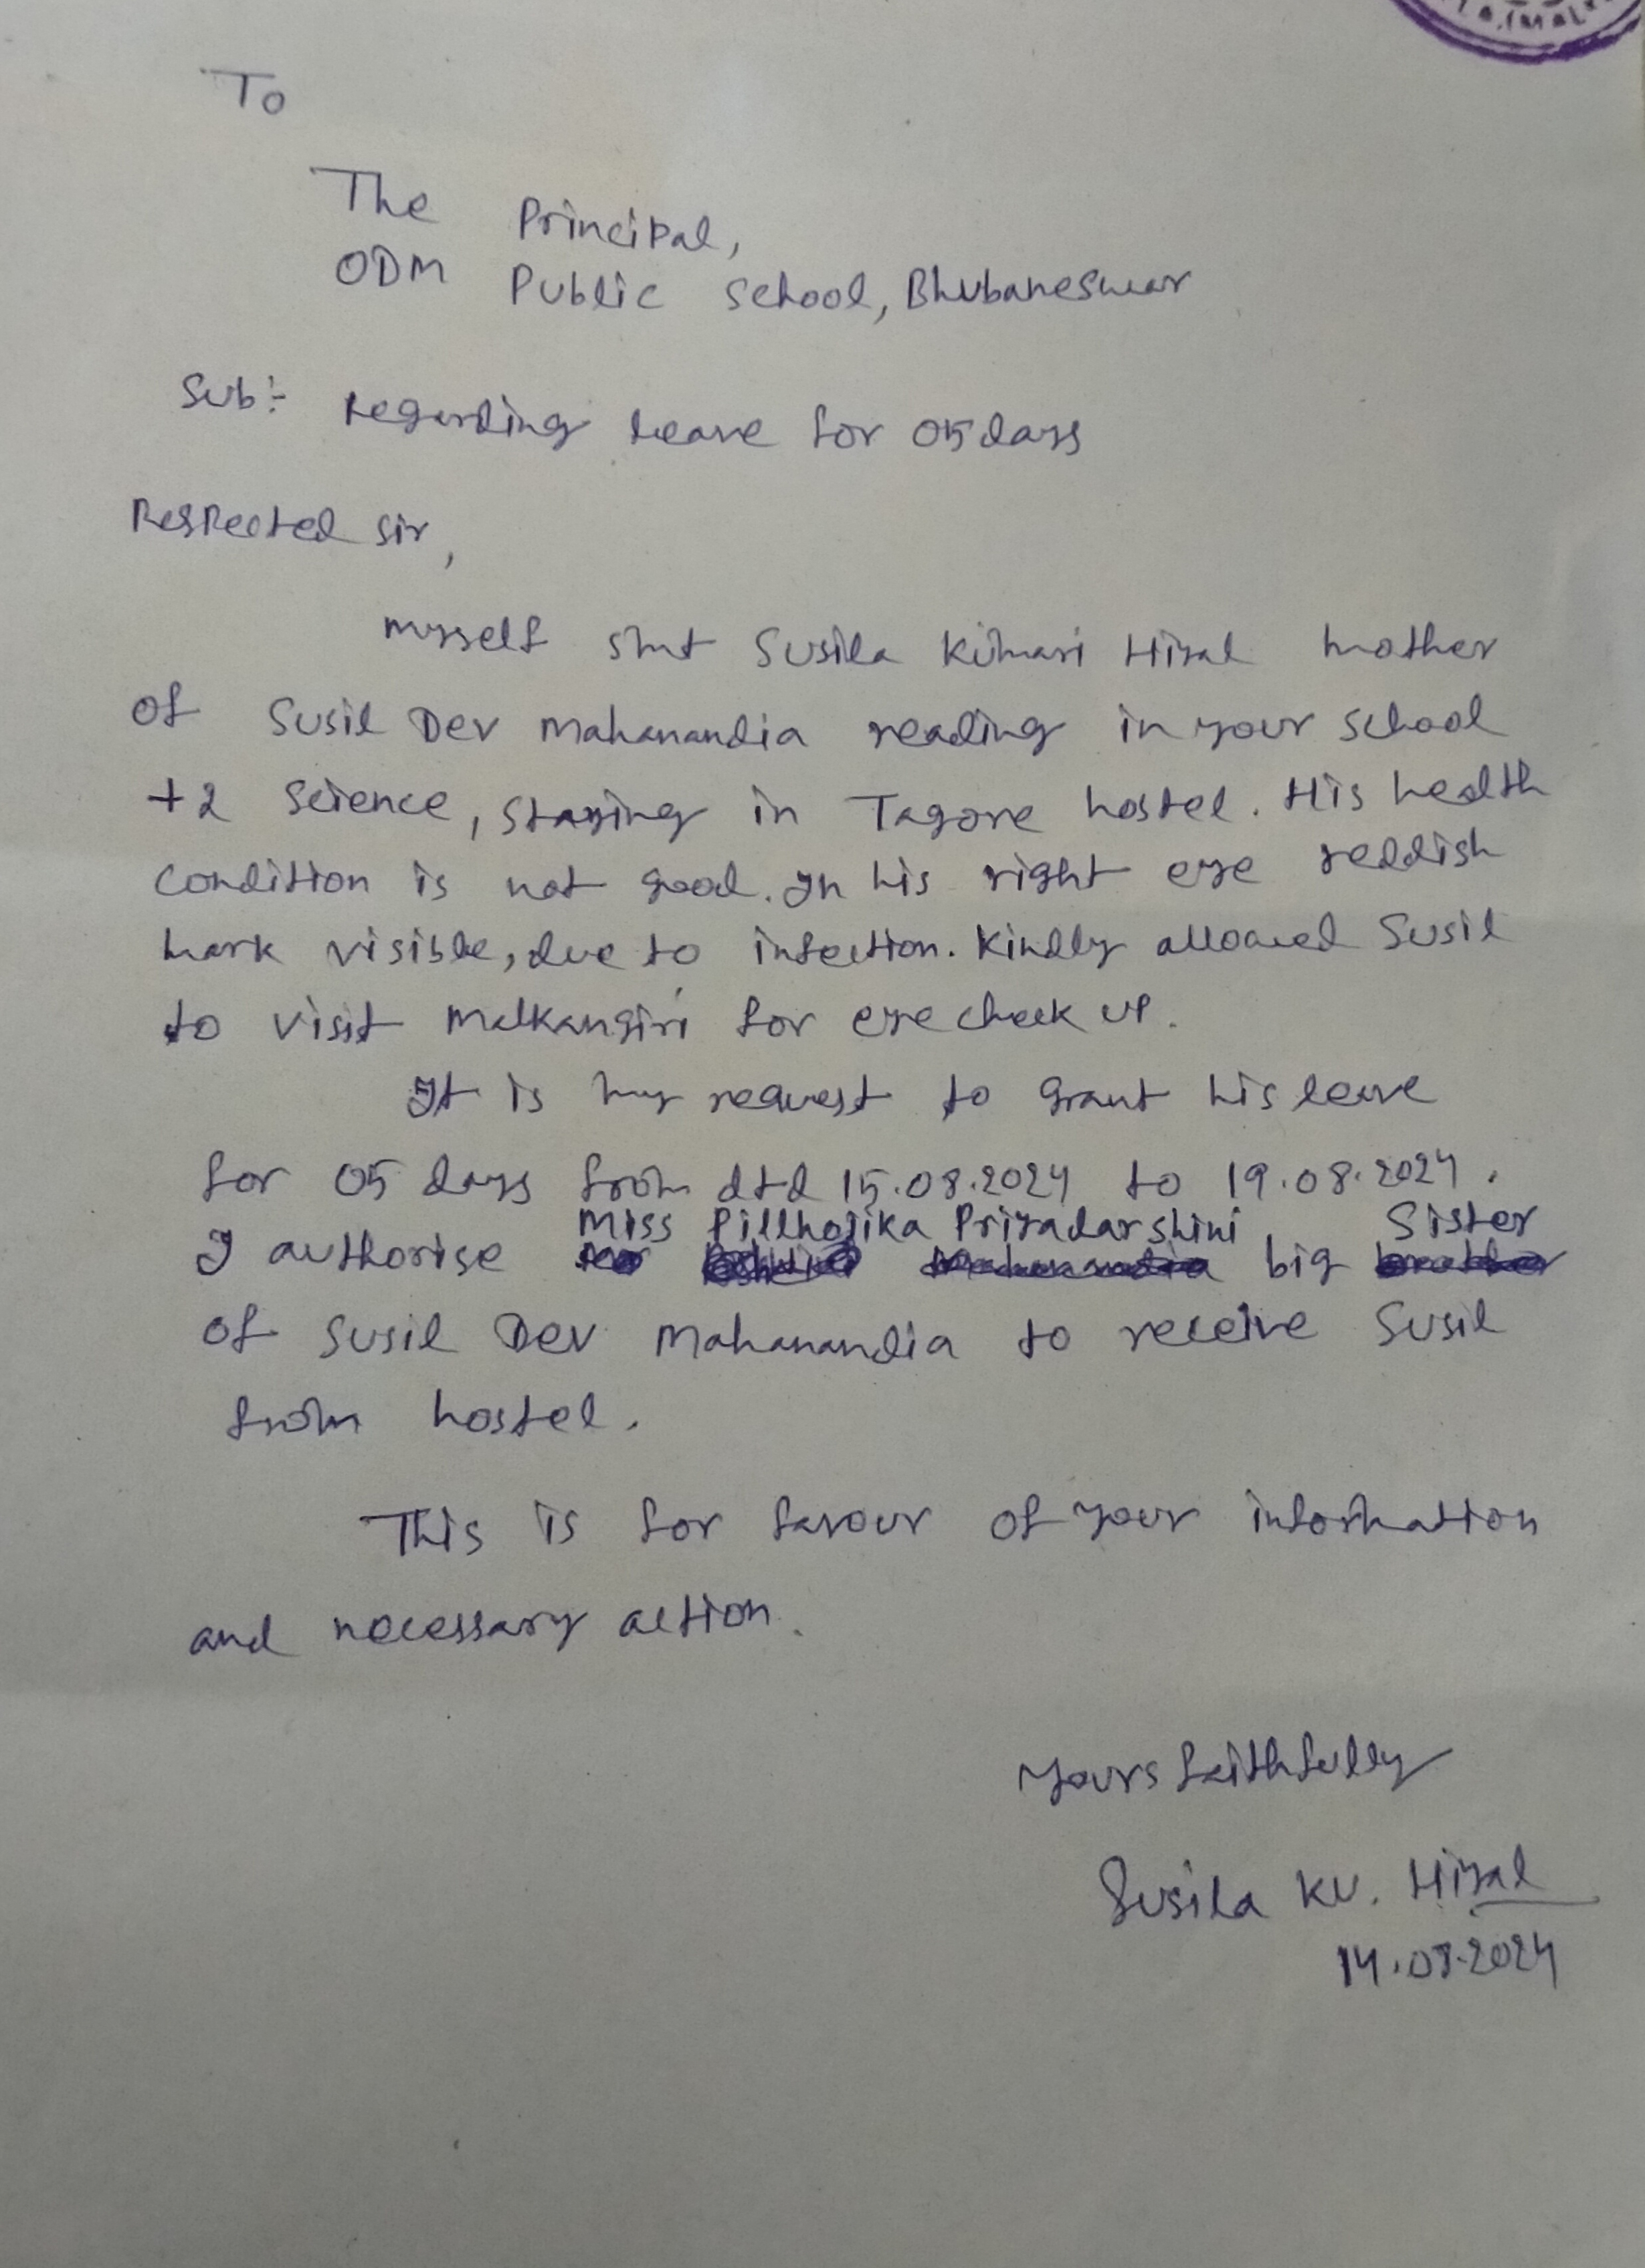 To
The Principal,
ODM Public School, Bhubaneswar
Sub:- Regarding leave for 05 days
Respected sir,
myself smt Susila Kumari Hiyal mother
of Susil Dev Mahanandia reading in your school
+2 Science, staying in Tagore hostel. His health
condition is not good. In his right eye reddish
mark visible, due to infection. Kindly allowed Susil
to visit Malkangiri for eye check up.
It is my request to grant his leave
for 05 days from dtd 15.08.2024 to 19.08.2024.
Miss Pillhojika Priyadarshini Sister
I authorise big
of Susil Dev Mahanandia to receive Susil
from hostel.
This is for favour of your information
and necessary action.
Yours faithfully
Susila Ku. Hiyal
14.08.2024